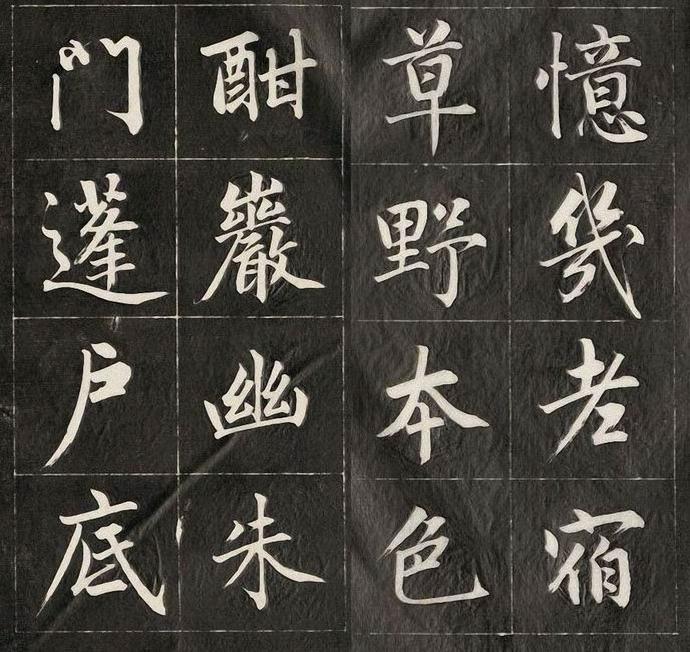 憶幾老宿
草野本色
酣巖幽朱
門蓬户底